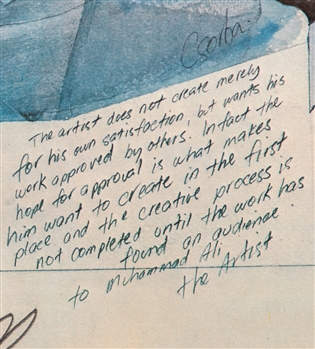 Csorba.
The artist does not create merely
for his own satisfaction, but wants his
work approved by others. Infact the
hope for approval is what makes
him want to create in the first
place and the creative process is
not completed until the work has
found an audience.
to Muhammad Ali
the Artist